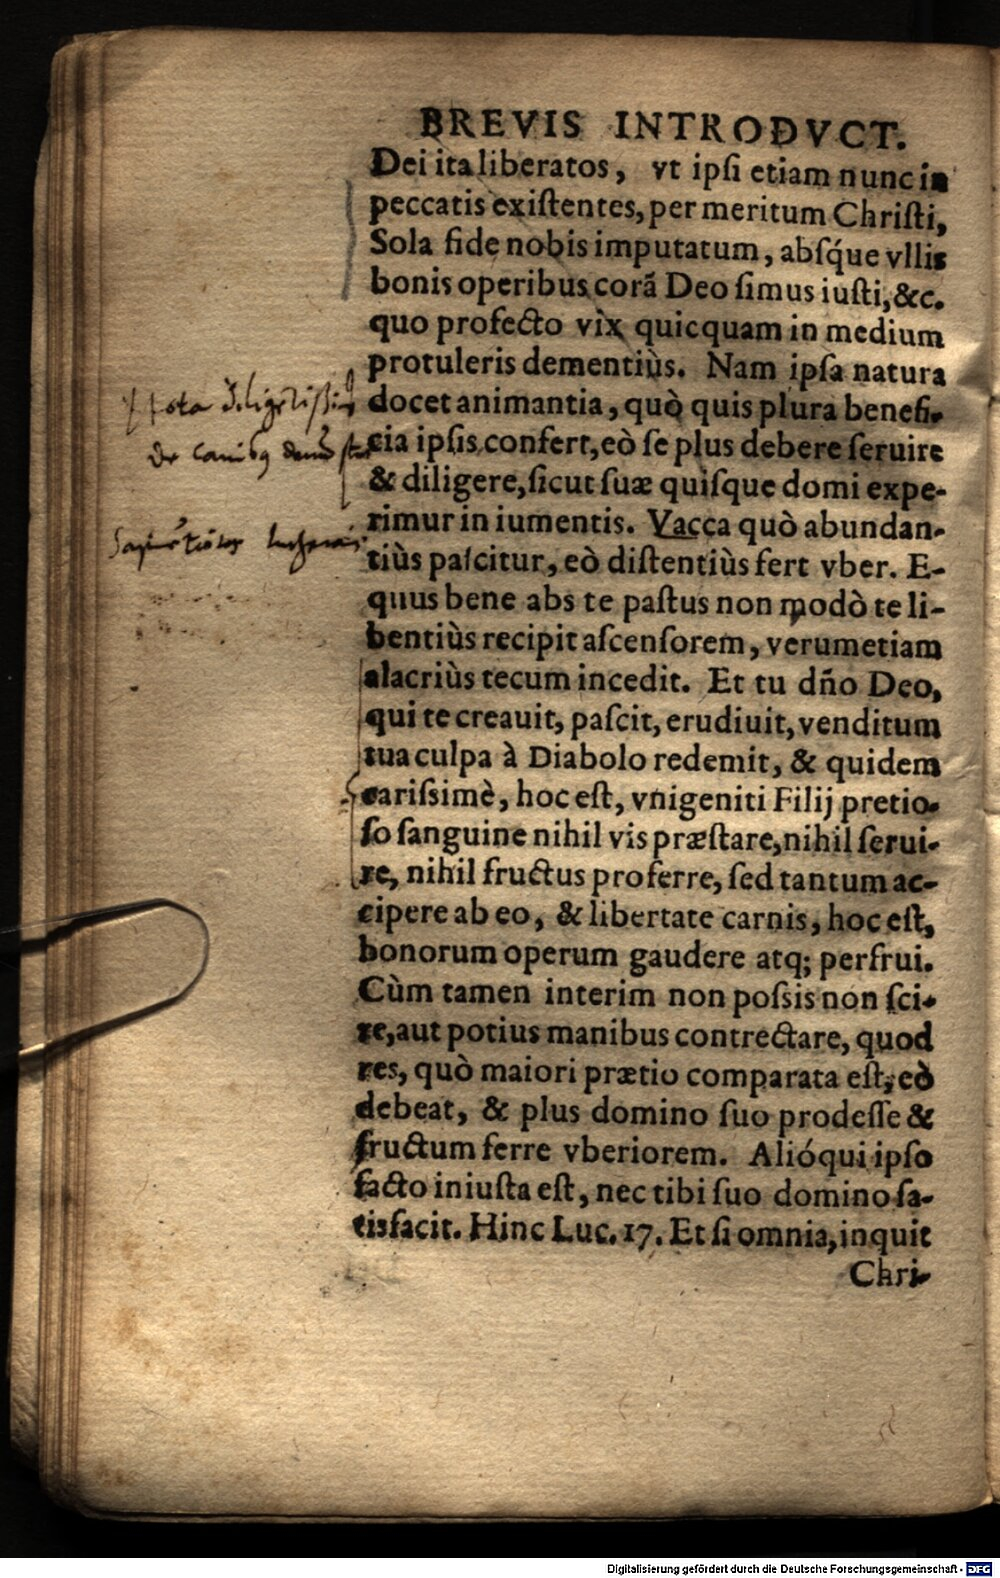 BREVIS INTRODVCT.
Dei ita liberatos, vt ipſi etiam nunc in
peccatis exiſtentes, per meritum Chriſti,
Sola fide nobis imputatum, abſq́ue vllis
bonis operibus corã Deo ſimus iuſti, &c.
quo profecto vix quicquam in medium
protuleris dementiùs. Nam ipſa natura
docet animantia, quò quis plura benefi-
cia ipſis confert, eò ſe plus debere ſeruire
& diligere, ſicut ſuæ quiſque domi expe-
rimur in iumentis. Vacca quò abundan-
tiùs paſcitur, eò diſtentiùs fert vber. E-
quus bene abs te paſtus non modò te li-
bentiùs recipit aſcenſorem, verumetiam
alacriùs tecum incedit. Et tu dn̄o Deo,
qui te creauit, paſcit, erudiuit, venditum
tua culpa à Diabolo redemit, & quidem
cariſsimè, hoc eſt, vnigeniti Filij pretio-
ſo ſanguine nihil vis præſtare, nihil ſerui-
re, nihil fructus proferre, ſed tantum ac-
cipere ab eo, & libertate carnis, hoc eſt,
bonorum operum gaudere atq; perfrui.
Cùm tamen interim non poſsis non ſci-
re, aut potius manibus contrectare, quod
res, quò maiori prætio comparata eſt, eò
debeat, & plus domino ſuo prodeſſe &
fructum ferre vberiorem. Alióqui ipſo
facto iniuſta eſt, nec tibi ſuo domino ſa-
tisfacit. Hinc Luc. 17. Et ſi omnia, inquit
Chri-
Nota
De
Digitalisierung gefördert durch die Deutsche Forschungsgemeinschaft - DFG